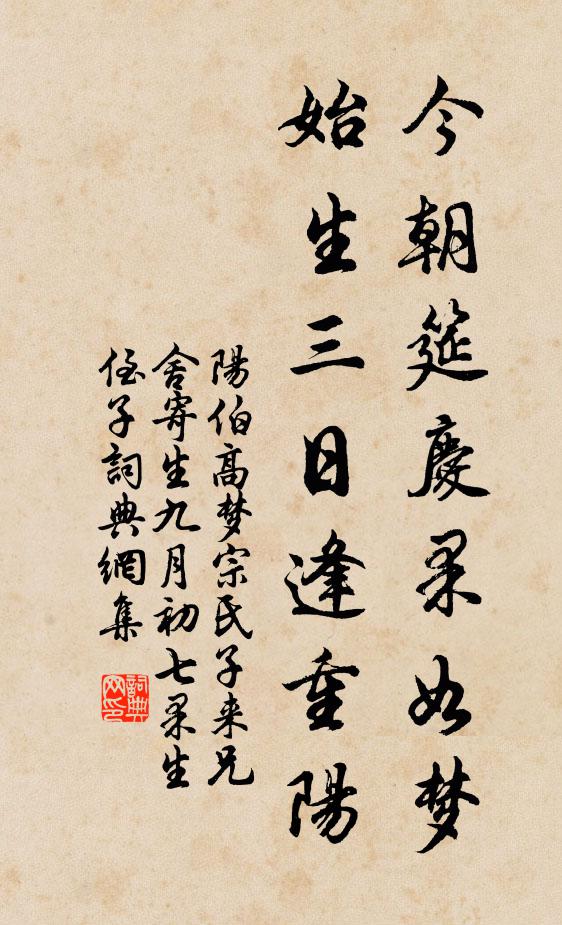 今朝筵慶果如梦
始生三日逢重陽
陽伯高梦宗氏子来兄
舍寄生九月初七果生
侄子詞典網集
詞典网印